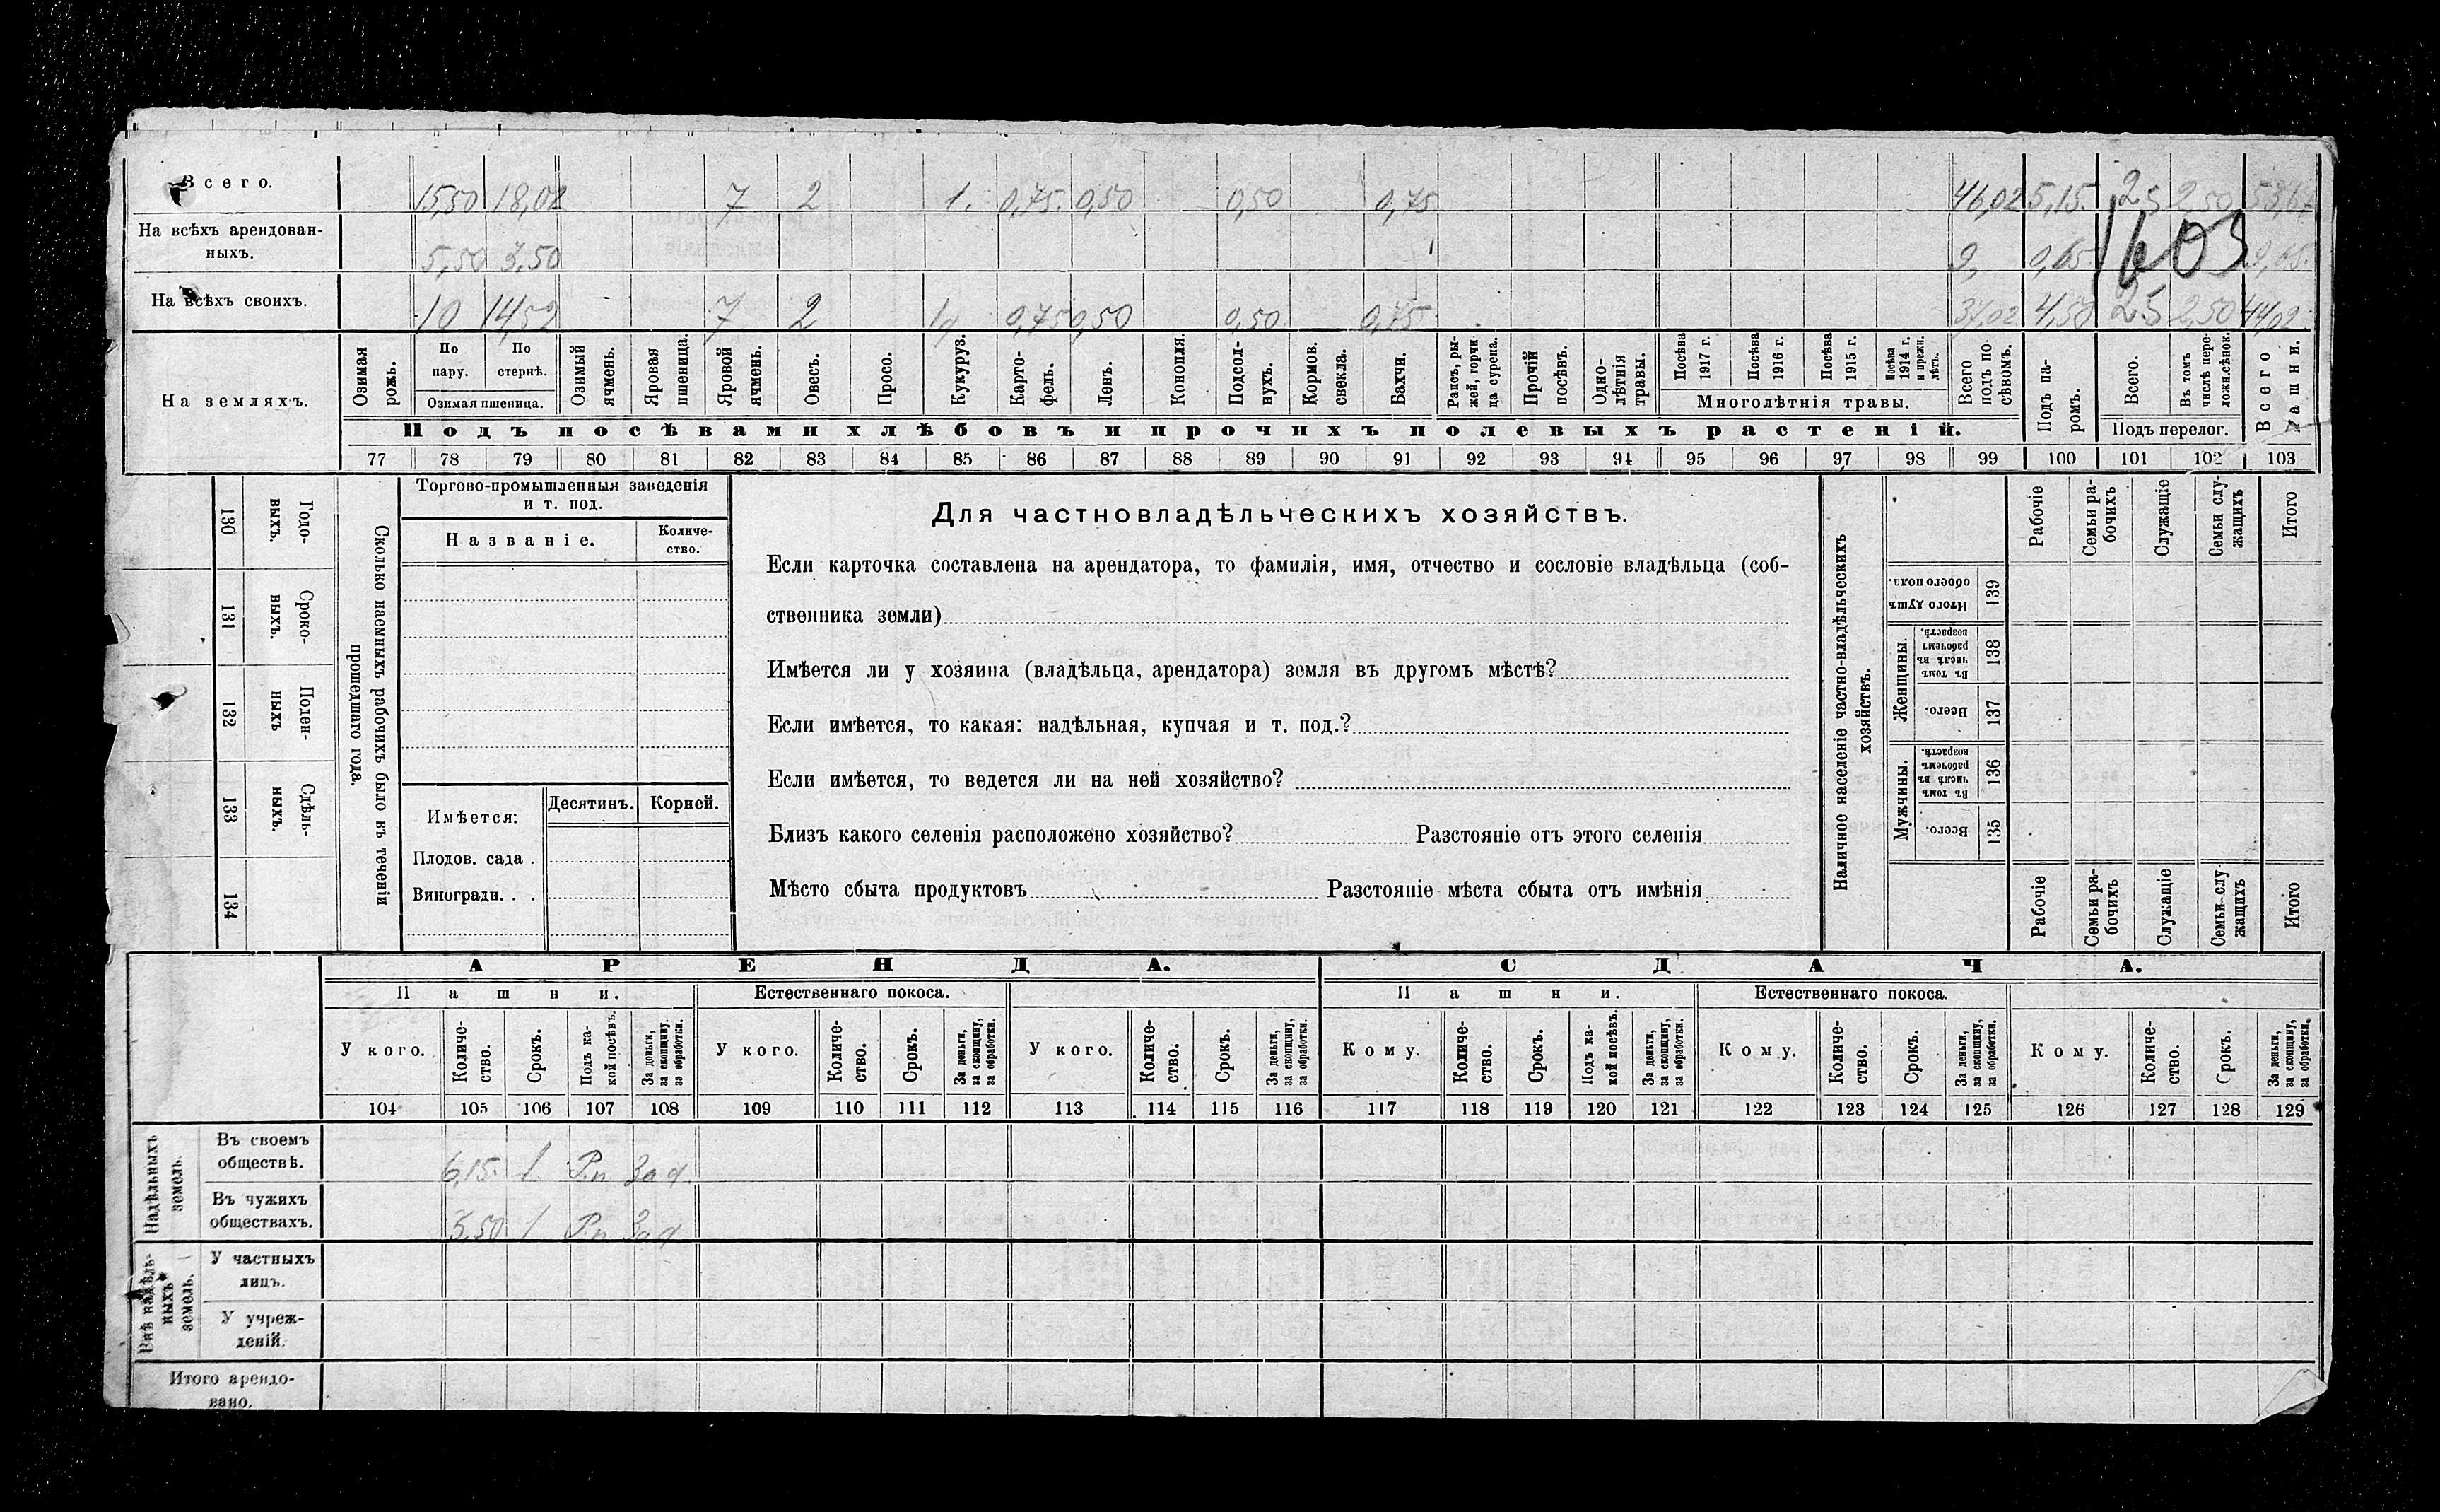 Всего. 15,50 18,02 7 2 1. 0,75. 0,50 0,50 0,75 46,02 5,15. 2,50
На всѣхъ арендован-
ныхъ. 5,50 3,50 9, 0,65 9,65.
1603
На всѣхъ своихъ. 10 14,52 7 2 0,75 0,50 0,50 0,75 37,02 4,50 25 2,50 44,02
На земляхъ.
Озимая рожь.
По пару.
По стернѣ.
Озимая пшеница.
Озимый ячмень.
Яровая пшеница.
Яровой ячмень.
Овесъ.
Просо.
Кукуруз.
Карто-
фель.
Ленъ.
Конопля.
Подсол-
нухъ.
Кормов. свекла.
Бахчи.
Рапсъ, ры-
жей, горчи-
ца сурепа.
Прочій посѣвъ.
Одно-
лѣтнія травы.
Посѣва 1917 г.
Посѣва 1916 г.
Посѣва 1915 г.
Посѣва 1914 г. и прежн. лѣтъ.
Многолѣтнія травы.
Всего подъ по-
сѣвомъ.
Подъ па-
ромъ.
Всего.
Въ томъ числѣ пере-
ложн. сѣнок.
Подъ перелог.
Всего пашни.
Подъ посѣвами хлѣбовъ и прочихъ полевыхъ растеній.
77 78 79 80 81 82 83 84 85 86 87 88 89 90 91 92 93 94 95 96 97 98 99 100 101 102 103
Годо-
выхъ.
130
Сроко-
выхъ.
131
Поден-
ныхъ
132
Сдѣль-
ныхъ.
133
134
Сколько наемныхъ рабочихъ было въ теченіи
прошедшаго года.
Торгово-промышленныя заведенія
и т. под.
Названіе.
Количе-
ство.
Имѣется:
Десятинъ.
Корней.
Плодов. сада .
Виноградн. . .
Для частновладѣльческихъ хозяйствъ.
Если карточка составлена на арендатора, то фамилія, имя, отчество и сословіе владѣльца (соб-
ственника земли)
Имѣется ли у хозяина (владѣльца, арендатора) земля въ другомъ мѣстѣ?
Если имѣется, то какая: надѣльная, купчая и т. под.?
Если имѣется, то ведется ли на ней хозяйство?
Близъ какого селенія расположено хозяйство? Разстояніе отъ этого селенія
Мѣсто сбыта продуктовъ Разстояніе мѣста сбыта отъ имѣнія
Наличное населеніе частно-владѣльческихъ
хозяйствъ.
Рабочіе
Семьи ра-
бочихъ
Служащіе
Семьи слу-
жащихъ
Итого
Итого душъ
обоего пола.
139
Женщины.
Въ томъ числѣ въ рабочемъ возрастѣ.
138
Всего.
137
Мужчины.
Въ томъ числѣ въ рабочемъ возрастѣ.
136
Всего.
135
Рабочіе
Семьи ра-
бочихъ
Служащіе
Семьи-слу-
жащихъ
Итого
АРЕНДА. СДАЧА.
Пашни. Естественнаго покоса. Пашни. Естественнаго покоса.
У кого.
Количе-
ство.
Срокъ.
Подъ ка-
кой посѣвъ.
За деньги,
за скопщину,
за обработки.
У кого.
Количе-
ство.
Срокъ.
За деньги,
за скопщину,
за обработки.
У кого.
Количе-
ство.
Срокъ.
За деньги,
за скопщину,
за обработки.
Кому.
Количе-
ство.
Срокъ.
Подъ ка-
кой посѣвъ.
За деньги,
за скопщину,
за обработки.
Кому.
Количе-
ство.
Срокъ.
За деньги,
за скопщину,
за обработки.
Кому.
Количе-
ство.
Срокъ.
За деньги,
за скопщину,
за обработки.
104 105 106 107 108 109 110 111 112 113 114 115 116 117 118 119 120 121 122 123 124 125 126 127 128 129
Надѣльныхъ
земель.
Въ своемъ
обществѣ. 6,15. 1. Рп За д.
Въ чужихъ
обществахъ. 3,50 1 Рп За д
Внѣ надѣль-
ныхъ
земель.
У частныхъ
лицъ.
У учреж-
деній.
Итого арендо-
вано.